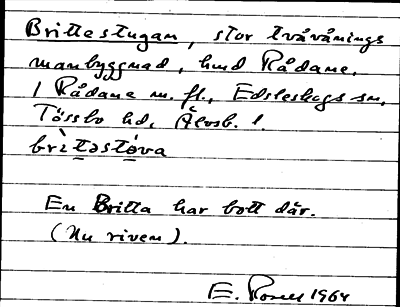 Brittestugan, stor tvåvånings
manbyggnad, hmd Rådane.
1 Rådane m. fl., Edsleskogs sn,
Tössbo hd, Älvsb. l.
brìtəstə́va
En Britta har bott där.
(Nu riven).
E. 1964